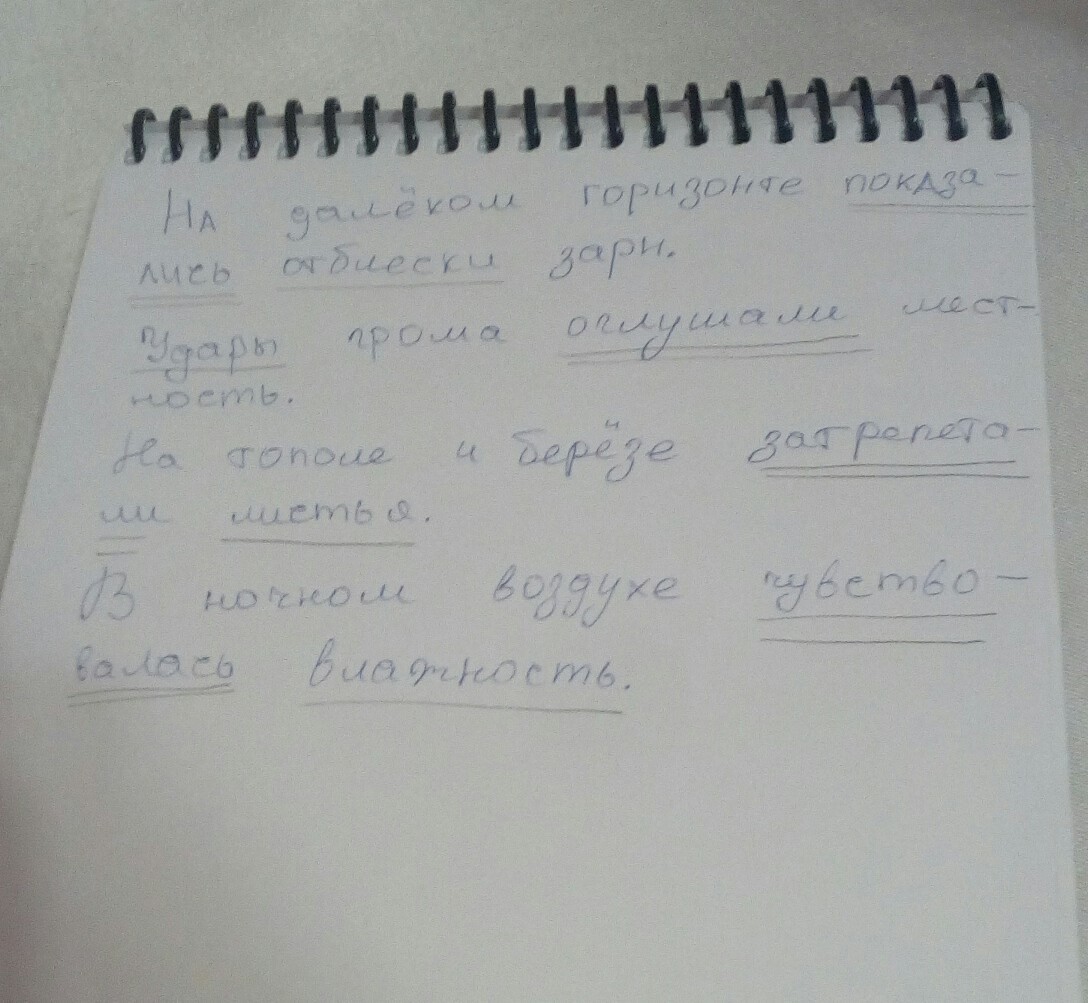 На далёком горизонте показа-
лись отблески зари.
Удары грома оглушали мест-
ность.
На тополе и берёзе затрепета-
ли листья.
В ночном воздухе чувство-
валась влажность.